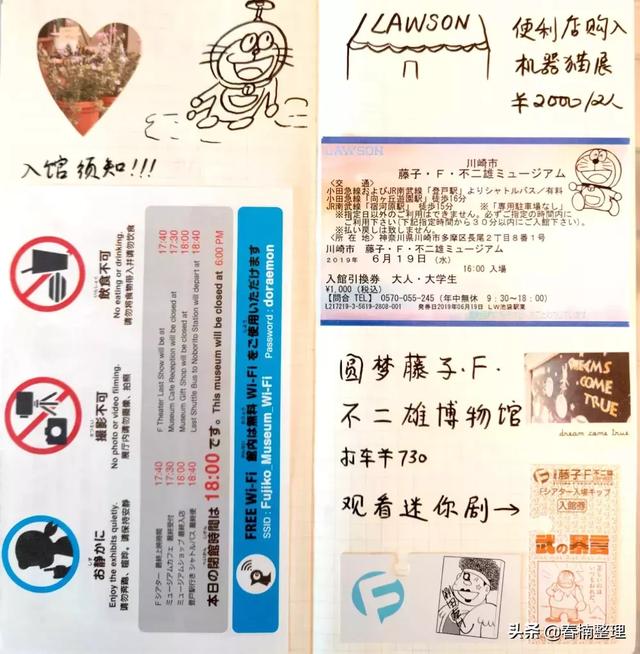 入馆须知!!!
飲食不可
No eating or drinking.
请勿将食物带入并请勿饮食
撮影不可
No photo or video filming.
展厅内请勿摄像、拍照
お静かに
Enjoy the exhibits quietly.
请勿奔跑、喧哗。请保持安静
Fシアター 最終上映時間 17:40
ミュージアムカフェ 最終受付 17:30
ミュージアムショップ 最終入店 18:00
登戸駅行き シャトルバス 最終便 18:40
F Theater Last Show will be at 17:40
Museum Cafe Reception will be closed at 17:30
Museum Gift Shop will be closed at 18:00
Last Shuttle Bus to Noborito Station will depart at 18:40
本日の閉館時間は 18:00 です。This museum will be closed at 6:00 PM
FREE Wi-Fi 館内は無料 Wi-Fi をご使用いただけます
SSID : Fujiko_Museum_Wi-Fi Password : doraemon
LAWSON
便利店购入
机器猫展
¥2000/2人
LAWSON
川崎市
藤子・F・不二雄ミュージアム
<交 通>
小田急線およびJR南武線「登戸駅」よりシャトルバス/有料
小田急線「向ヶ丘遊園駅」徒歩16分
JR南武線「宿河原駅」徒歩15分 ※「専用駐車場なし」
※指定日以外のご利用はできません。必ずご指定の時間内に
ご利用下さい(下記指定時間から30分以内にご入館下さい)。
※払い戻しは致しません。
<所在地>神奈川県川崎市多摩区長尾2丁目8番1号
川崎市 藤子・F・不二雄ミュージアム
2019年 6月19日(水)
16:00 入場
入館引換券 大人・大学生
¥1,000(税込)
【問合TEL】 0570-055-245(年中無休 9:30~18:00)
L217219-3-5619-2808-001 発券日2019年06月19日 LW池袋駅東
圆梦藤子·F·
不二雄博物馆
打车¥730
观看迷你剧→
DREAMS
COME
TRUE
dream come true
藤子・F・不二雄
Fシアター入場キップ
入館券
F
头条 @春楠整理